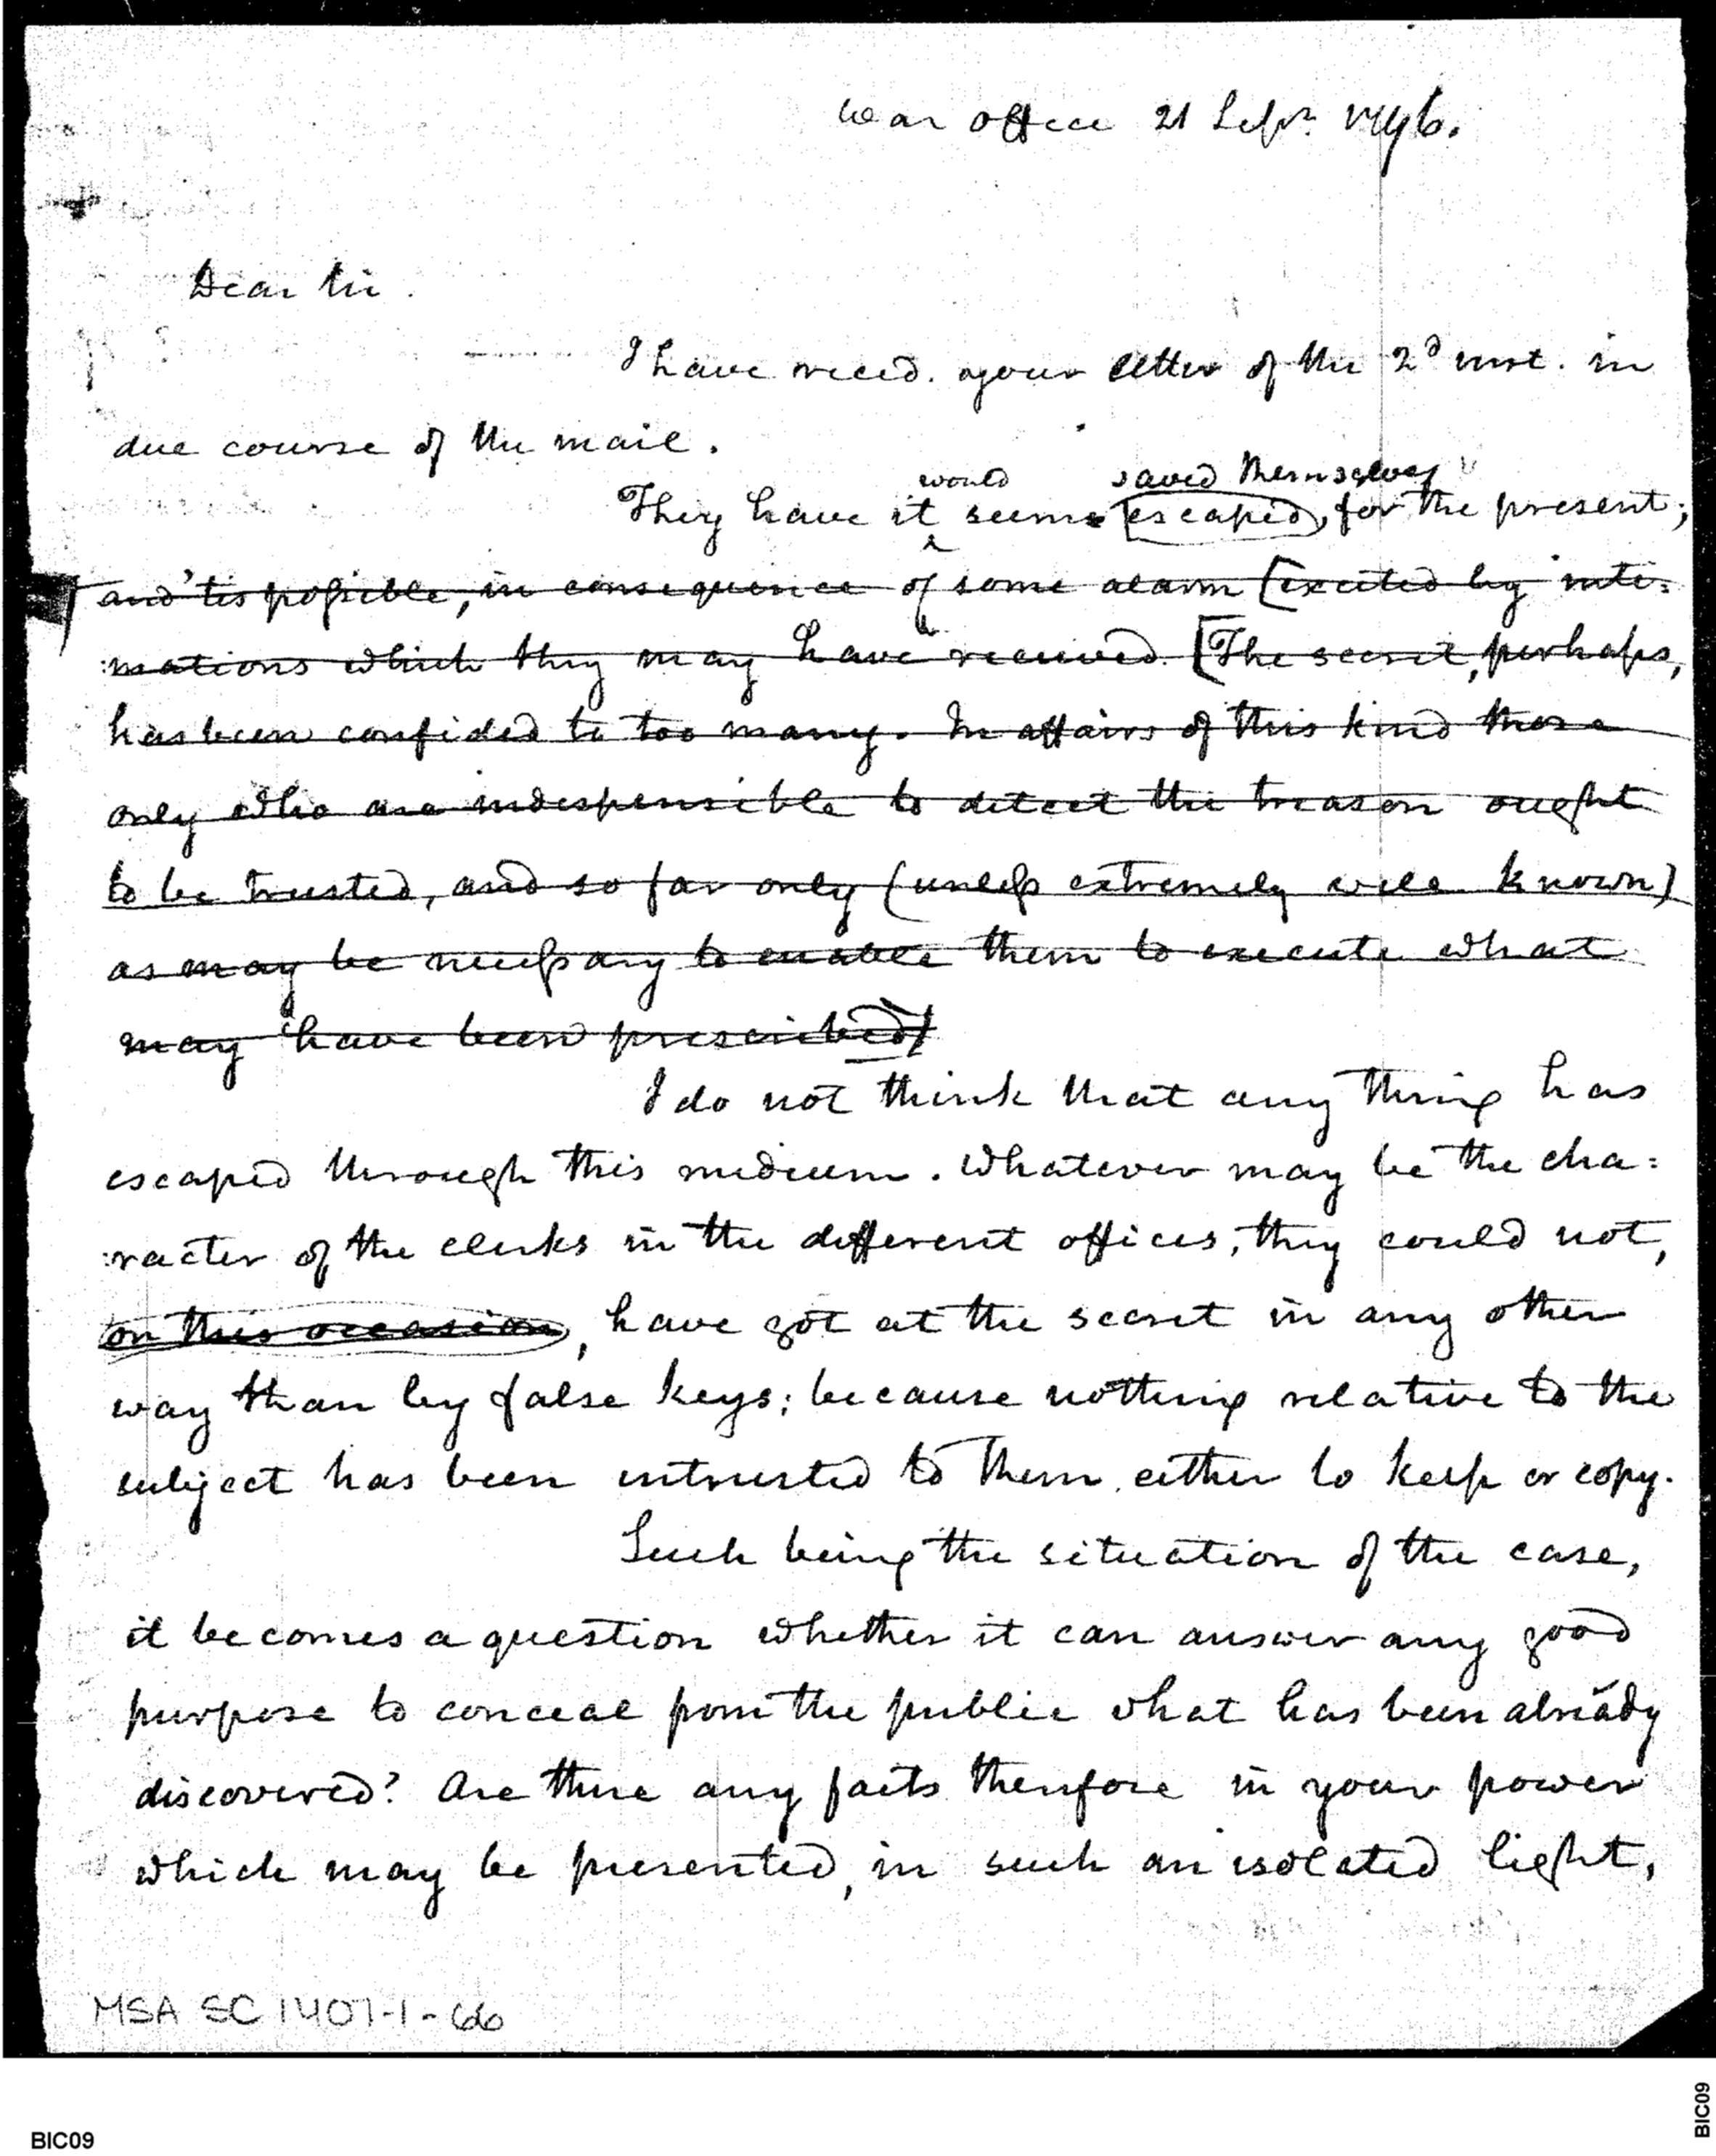 War office 21 Sepr. 1796.
Dear Sir.
I have recd. your letter of the 2d inst. in
due course of the mail.
would saved themselves
They have it seems escaped, for the present;
and 'tis possible, in consequence of some alarm [excited by inti:
:mations which they may have received. [The secret, perhaps,
has been confided to too many. In affairs of this kind those
only who are indespensible to detect the treason ought
to be trusted, and so far only (unless extremely well known)
as may be necessary to enable them to execute what
may have been prescribed]
I do not think that any thing has
escaped through this medium. Whatever may be the cha:
:racter of the clerks in the different offices, they could not,
on this occasion, have got at the secret in any other
way than by false keys; because nothing relative to the
subject has been intrusted to them either to keep or copy.
Such being the situation of the case,
it becomes a question whether it can answer any good
purpose to conceal from the public what has been already
discovered? Are there any facts therefore in your power
which may be presented, in such an isolated light,
MSA SC 1407-1-66
BIC09
BIC09